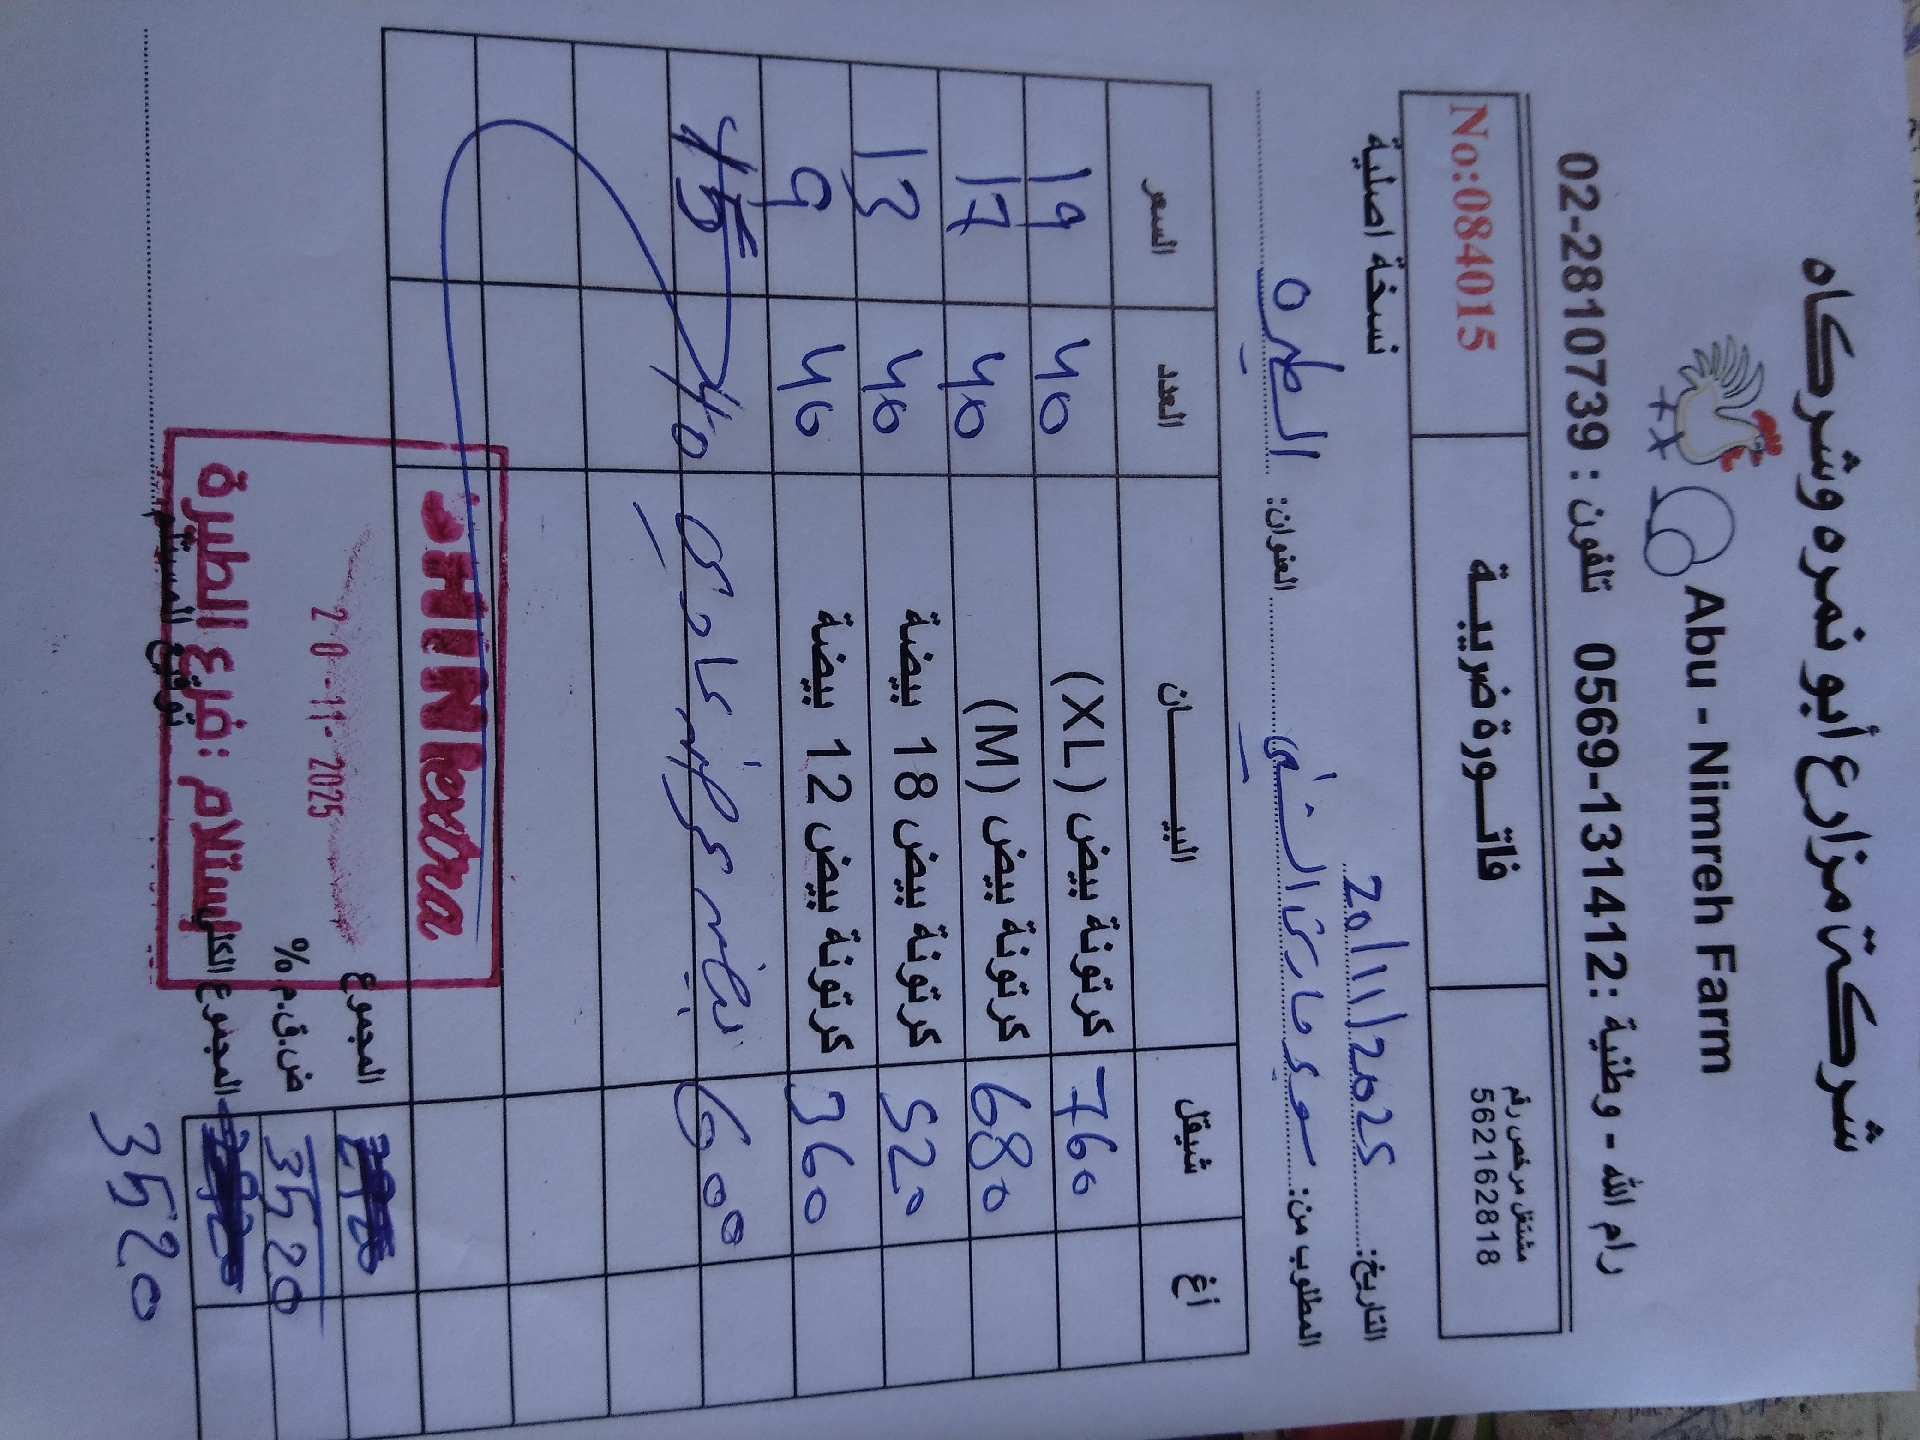 شركة مزارع أبو نمره وشركاه
Abu - Nimreh Farm
رام الله - وطنية : 0569-131412 تلفون : 02-2810739
مشتغل مرخص رقم
562162818
فاتـــورة ضريبـــة
No:084015
التاريخ: 20/11/2025
نسخة اصلية
المطلوب من: سوبر ماركت الشني
العنوان: الطيره
اغ شيقل البيـــــــان العدد السعر
760 كرتونة بيض (XL) 40 19
680 كرتونة بيض (M) 40 17
520 كرتونة بيض 18 بيضة 40 13
360 كرتونة بيض 12 بيضة 40 9
600 40 15
SHINIextra
المجموع
20-11-2025
ض.ق.م % 3520
المجموع الكلي
إستلام : فرع الطيرة
توقيع المستلم
3520